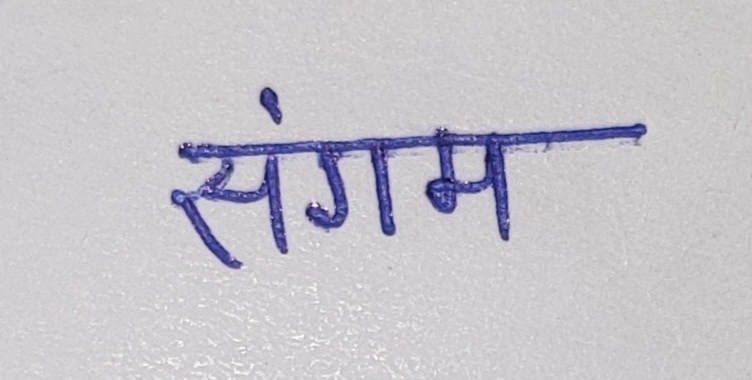 संगम